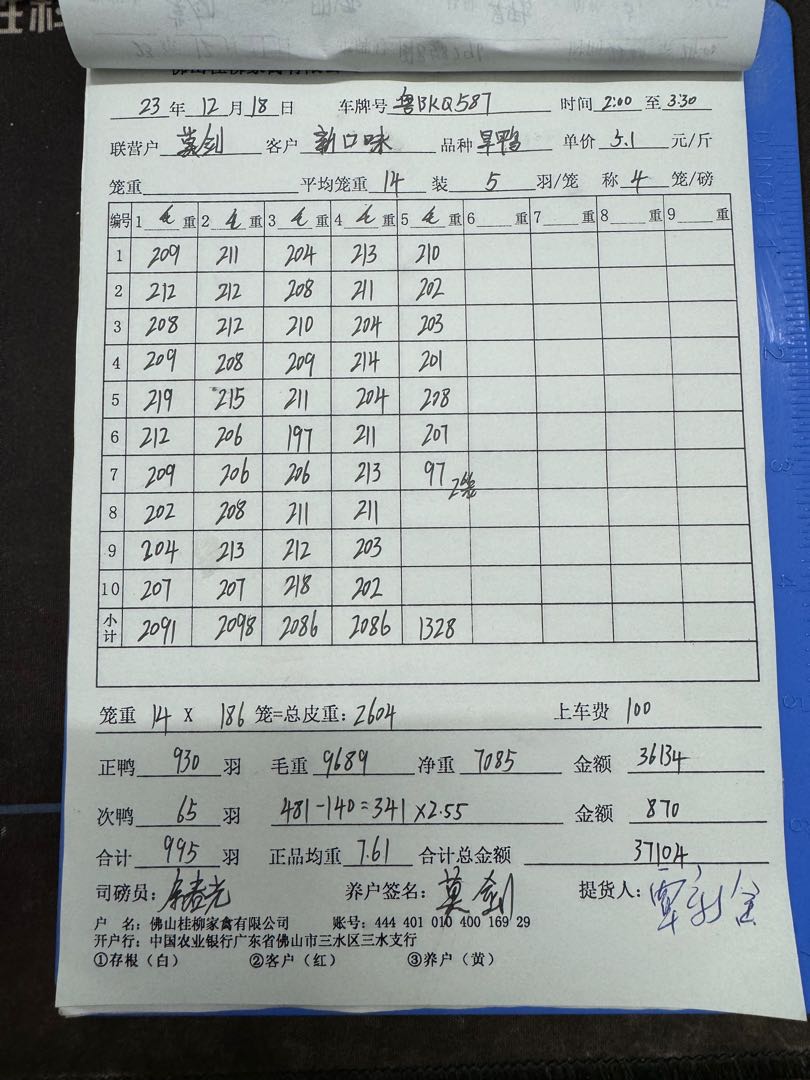 佛山桂柳家禽有限公司
23年12月18日 车牌号 粤BKQ587 时间 2:00 至 3:30
联营户 莫剑 客户 新口味 品种 旱鸭 单价 5.1 元/斤
笼重 平均笼重 14 装 5 羽/笼 称 4 笼/磅
编号 1 毛 重 2 毛 重 3 毛 重 4 毛 重 5 毛 重 6 重 7 重 8 重 9 重
1 209 211 204 213 210
2 212 212 208 211 202
3 208 212 210 204 203
4 209 208 209 214 201
5 219 215 211 204 208
6 212 206 197 211 207
7 209 206 206 213 97 2笼
8 202 208 211 211
9 204 213 212 203
10 207 207 218 202
小计 2091 2098 2086 2086 1328
笼重 14 X 186 笼=总皮重: 2604 上车费 100
正鸭 930 羽 毛重 9689 净重 7085 金额 36134
次鸭 65 羽 481-140=341×2.55 金额 870
合计 995 羽 正品均重 7.61 合计总金额 37104
司磅员: 养户签名: 莫剑 提货人:
户 名: 佛山桂柳家禽有限公司 账号: 444 401 010 400 169 29
开户行: 中国农业银行广东省佛山市三水区三水支行
①存根(白) ②客户(红) ③养户(黄)